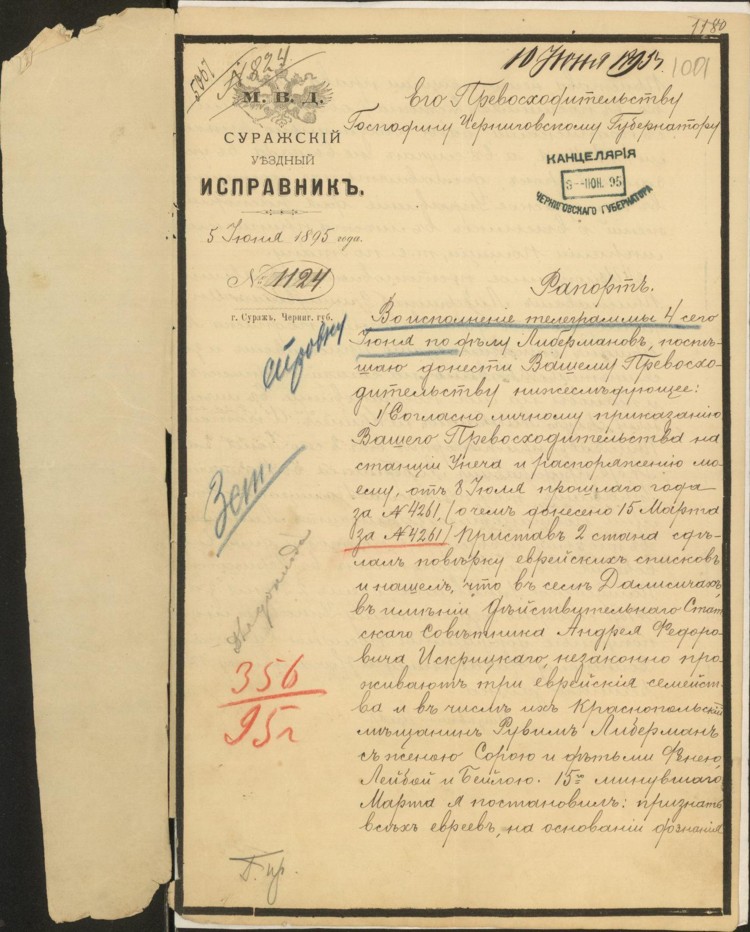 1180
10 Июня 1895 г.
1001
5067
№ 824
М. В. Д.
СУРАЖСКІЙ
УѢЗДНЫЙ
ИСПРАВНИКЪ.
5 Июня 1895 года.
№ 1124
г. Суражъ, Черниг. губ.
Его Превосходительству
Господину Черниговскому Губернатору
КАНЦЕЛЯРІЯ
5-ІЮН. 95
ЧЕРНИГОВСКАГО ГУБЕРНАТОРА
Рапортъ.
Во исполненіе телеграммы 4 сего
Іюня по дѣлу Либермановъ, поспѣ-
шаю донести Вашему Превосхо-
дительству нижеслѣдующее:
1) Согласно личному приказанію
Вашего Превосходительства на
станціи Унеча и распоряженію мо-
ему, отъ 8 Іюля прошлаго года
за № 4261, (о чемъ донесено 15 Марта
за № 4261) Приставъ 2 стана сдѣ-
лалъ повѣрку еврейскихъ списковъ
и нашелъ, что въ селѣ Далисичахъ,
въ имѣніи Дѣйствительнаго Стат-
скаго Совѣтника Андрея Федоро-
вича Искрицкаго, незаконно про-
живаютъ три еврейскія семейст-
ва и въ числѣ ихъ Краснопольскій
мѣщанинъ Рувимъ Либерманъ
съ женою Сорою и дѣтьми Фенею
Лейбой и Бейлою. 15го минувшаго
Марта я постановилъ: признать
всѣхъ евреевъ, на основаніи дознанія
справку
для доклада
356
95 г